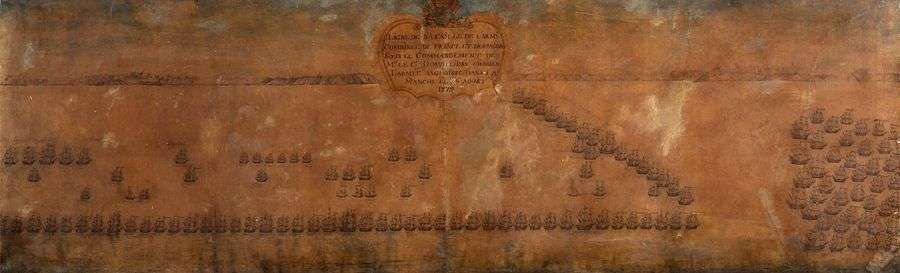 LIGNE DE BATAILLE DE L'ARMÉE
COMBINÉE DE FRANCE ET D'ESPAGNE
SOUS LE COMMANDEMENT DE
Mr LE Cte D'ORVILLIERS
L'ARMÉE ANGLOISE DANS LA
MANCHE LE AOUST
1779